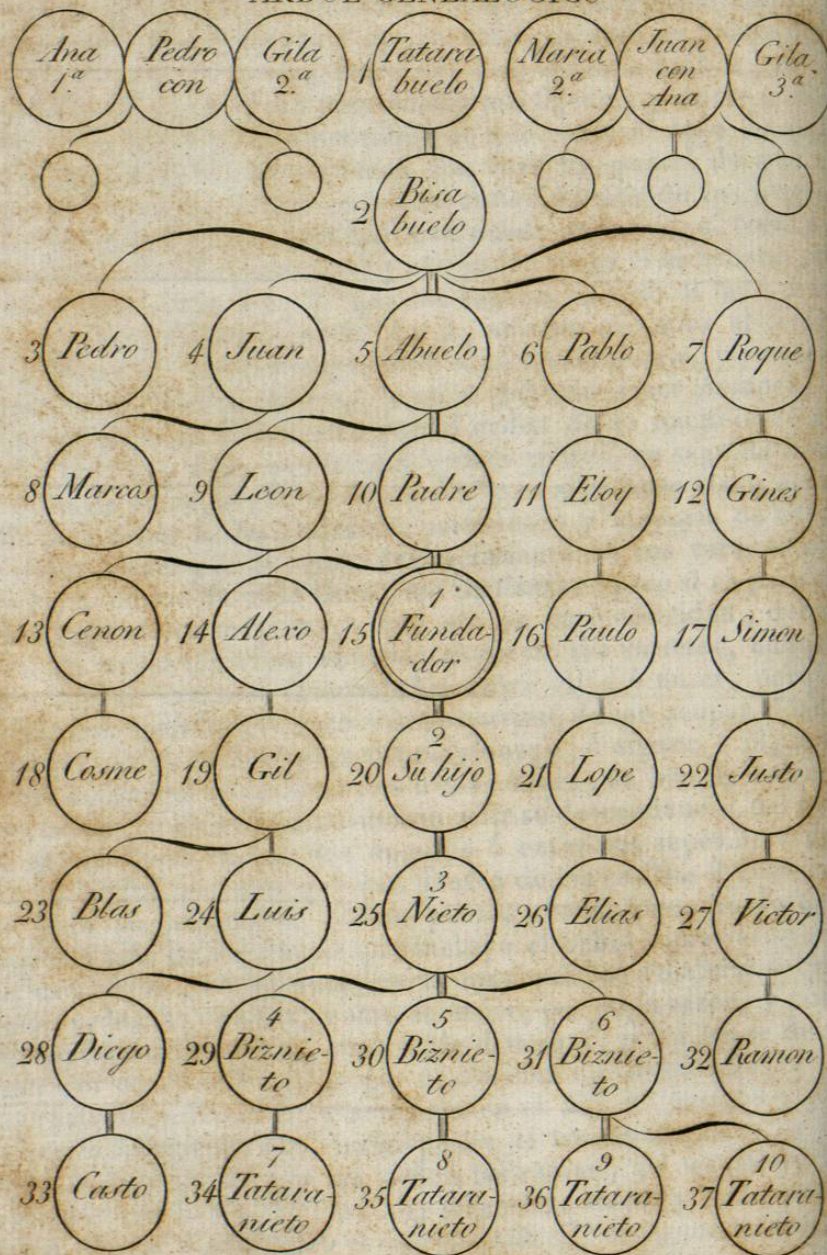 ARBOL GENEALOGICO
Ana 1.ª
Pedro con
Gila 2.ª
1 Tatara-buelo
Maria 2.ª
Juan con Ana
Gila 3.ª
2 Bisa buelo
3 Pedro
4 Juan
5 Abuelo
6 Pablo
7 Roque
8 Marcos
9 Leon
10 Padre
11 Eloy
12 Gines
13 Cenon
14 Alexo
15 1.º Funda-dor
16 Paulo
17 Simon
18 Cosme
19 Gil
20 2 Su hijo
21 Lope
22 Justo
23 Blas
24 Luis
25 3 Nieto
26 Elias
27 Victor
28 Diego
29 4 Biznie-to
30 5 Biznie-to
31 6 Biznie-to
32 Ramon
33 Casto
34 7 Tatara-nieto
35 8 Tatara-nieto
36 9 Tatara-nieto
37 10 Tatara-nieto